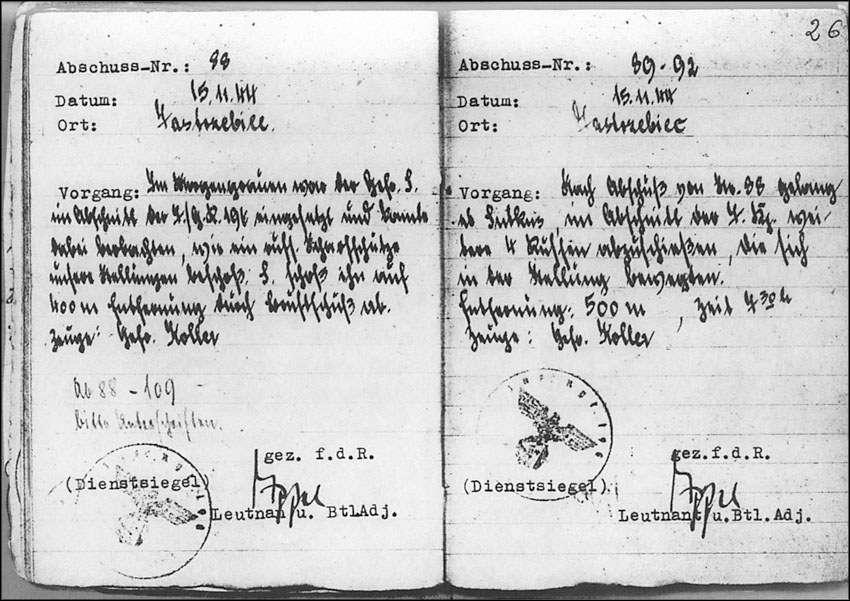 Abschuss-Nr.: 88
Datum: 15.11.44
Ort: Jastrzebiec.
Vorgang: Im Morgengrauen war der Gefr. S.
im Abschnitt der 7./G.R.196 eingesetzt und konnte
dabei beobachten, wie ein russ. Scharfschütze
unsere Stellungen beschoß. S. schoß ihn auf
400 m Entfernung durch Brustschuß ab.
Zeuge: Gefr. Koller
Ab 88 - 109 -
bitte Unterschriften.
gez. f.d.R.
(Dienstsiegel)
Leutnant u. Btl.Adj.
26
Abschuss-Nr.: 89-92
Datum: 15.11.44
Ort: Jastrzebiec
Vorgang: Nach Abschuß von Nr. 88 gelang
es Sutkus, im Abschnitt der 7. Kp. wei-
tere 4 Russen abzuschießen, die sich
in der Stellung bewegten.
Entfernung: 500 m, Zeit 7 30 h
Zeuge: Gefr. Koller
gez.f.d.R.
(Dienstsiegel)
Leutnant u.Btl.Adj.